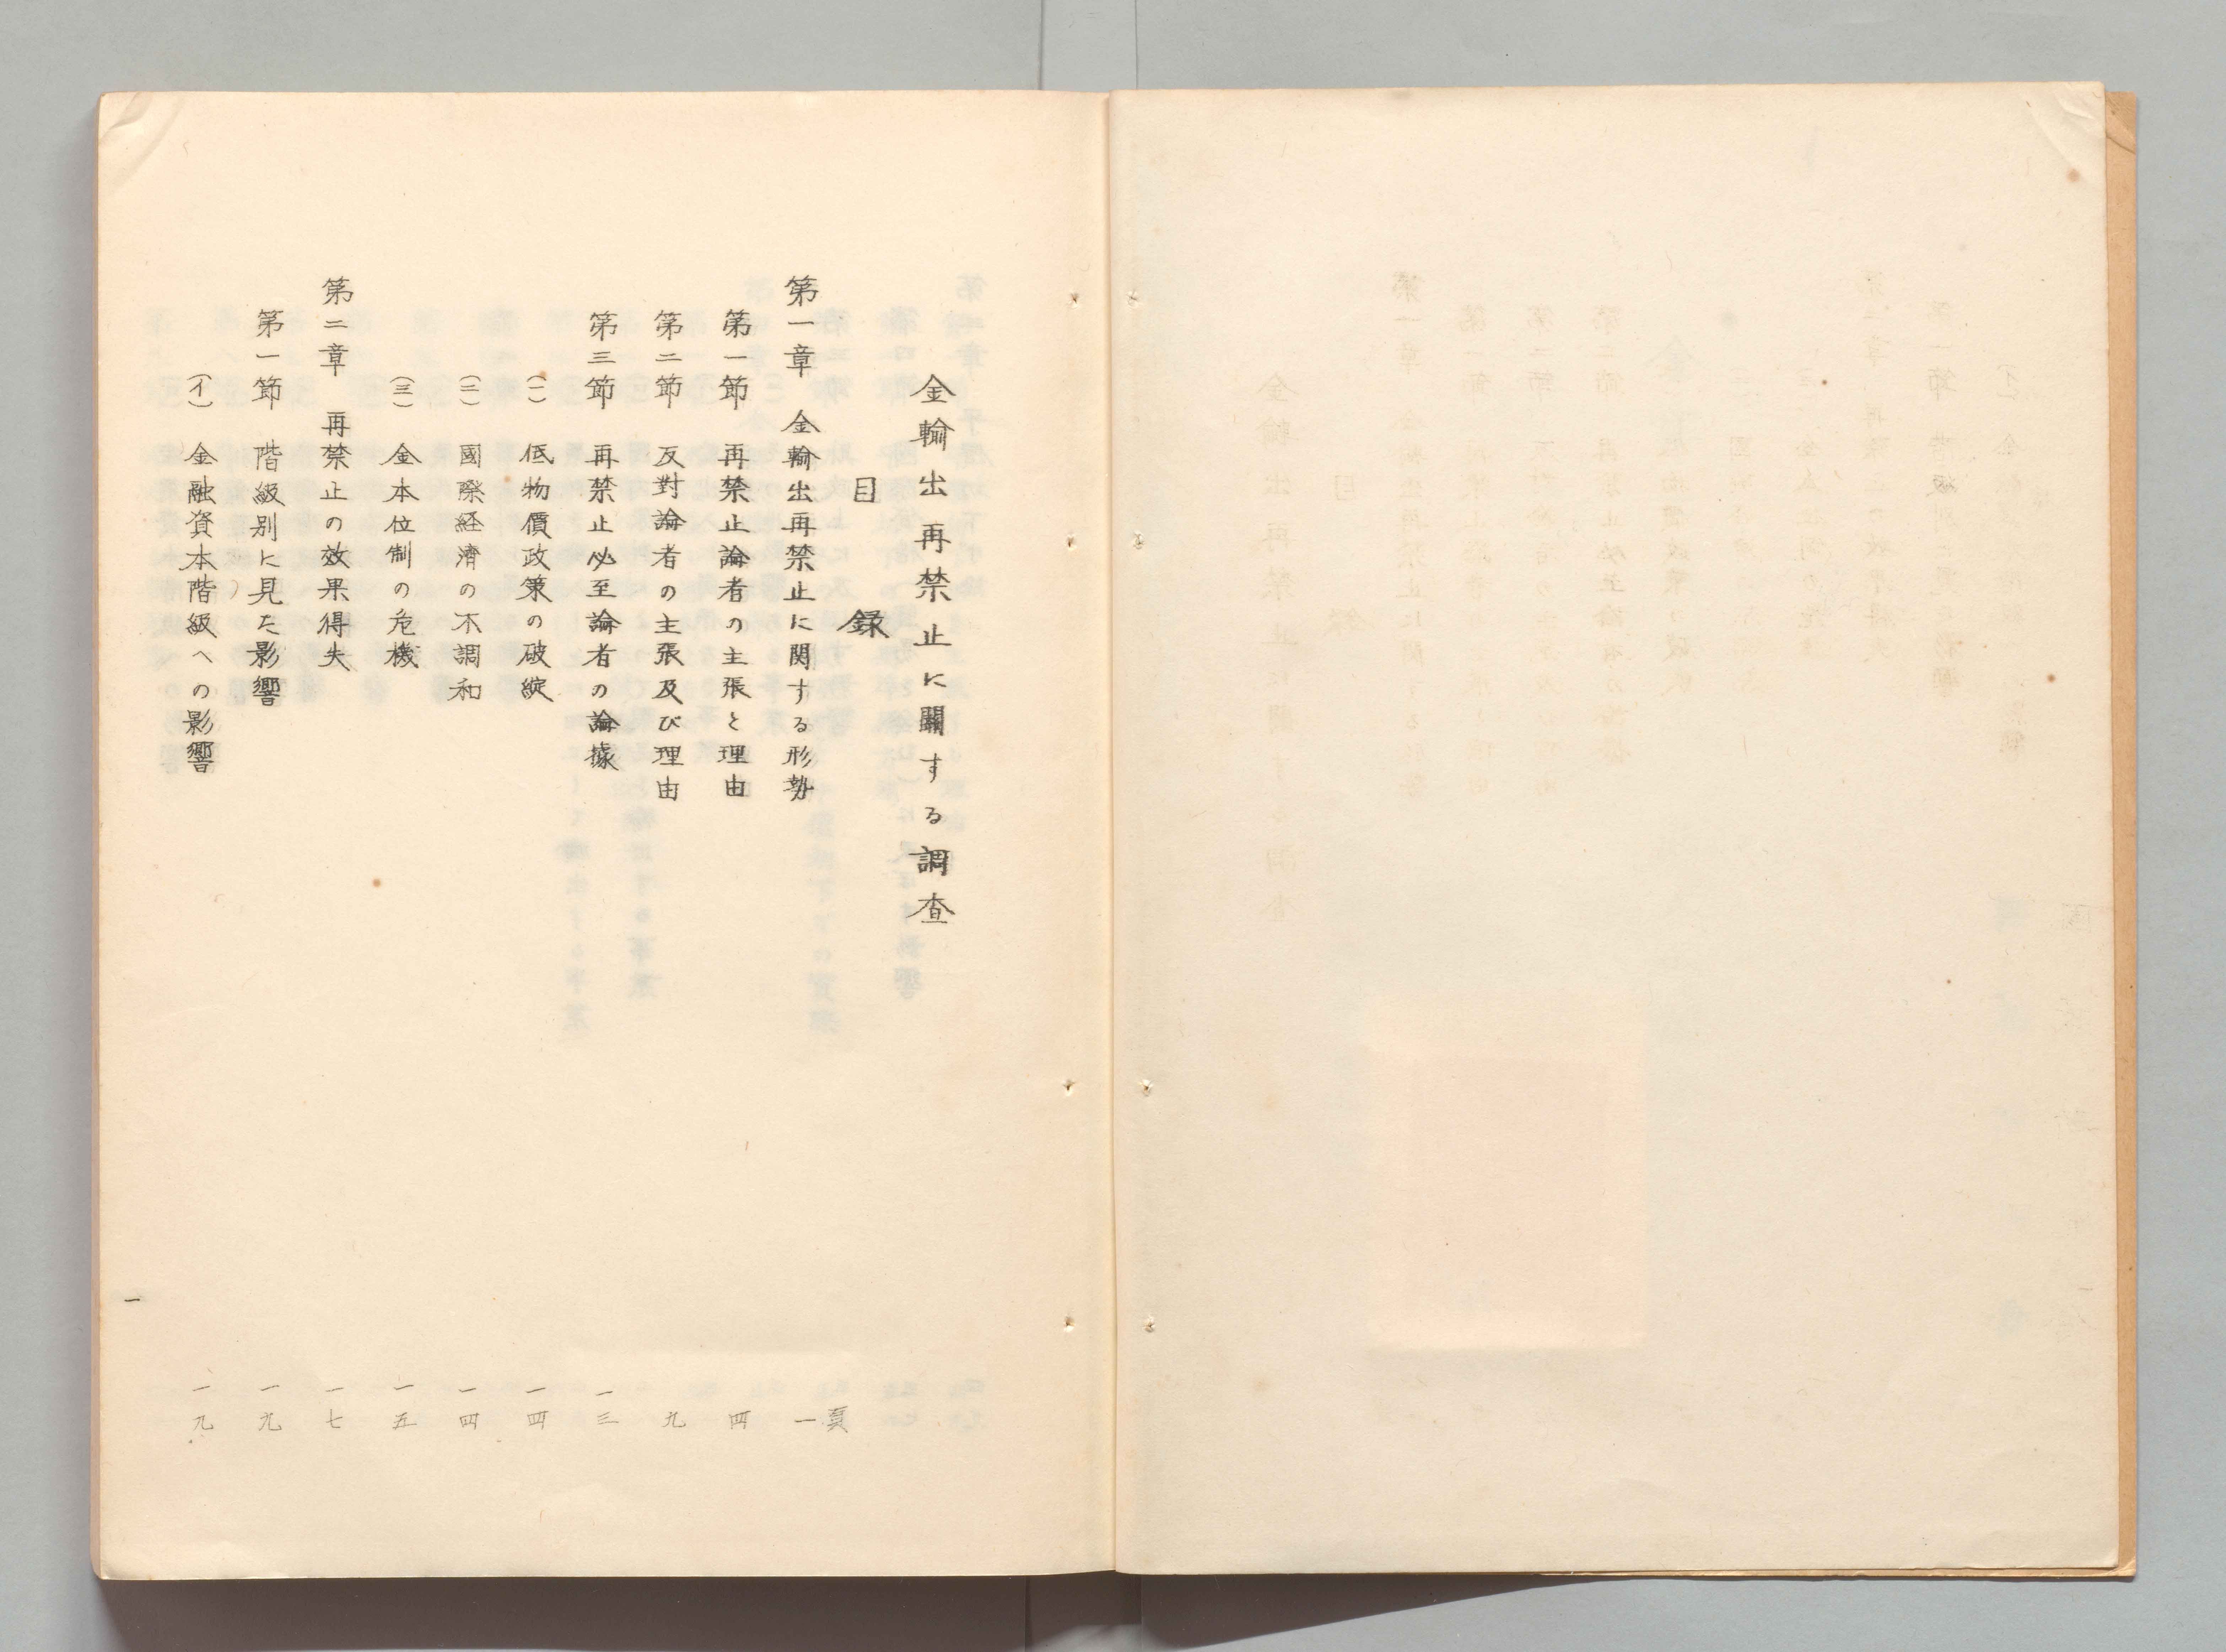 金輸出再禁止に關する調査
目録
頁
第一章 金輸出再禁止に関する形勢 一
第一節 再禁止論者の主張と理由 四
第二節 反對論者の主張及び理由 九
第三節 再禁止必至論者の論據 一三
(一) 低物價政策の破綻 一四
(二) 國際経濟の不調和 一四
(三) 金本位制の危機 一五
第二章 再禁止の效果得失 一七
第一節 階級別に見た影響 一九
(イ) 金融資本階級への影響 一九
一